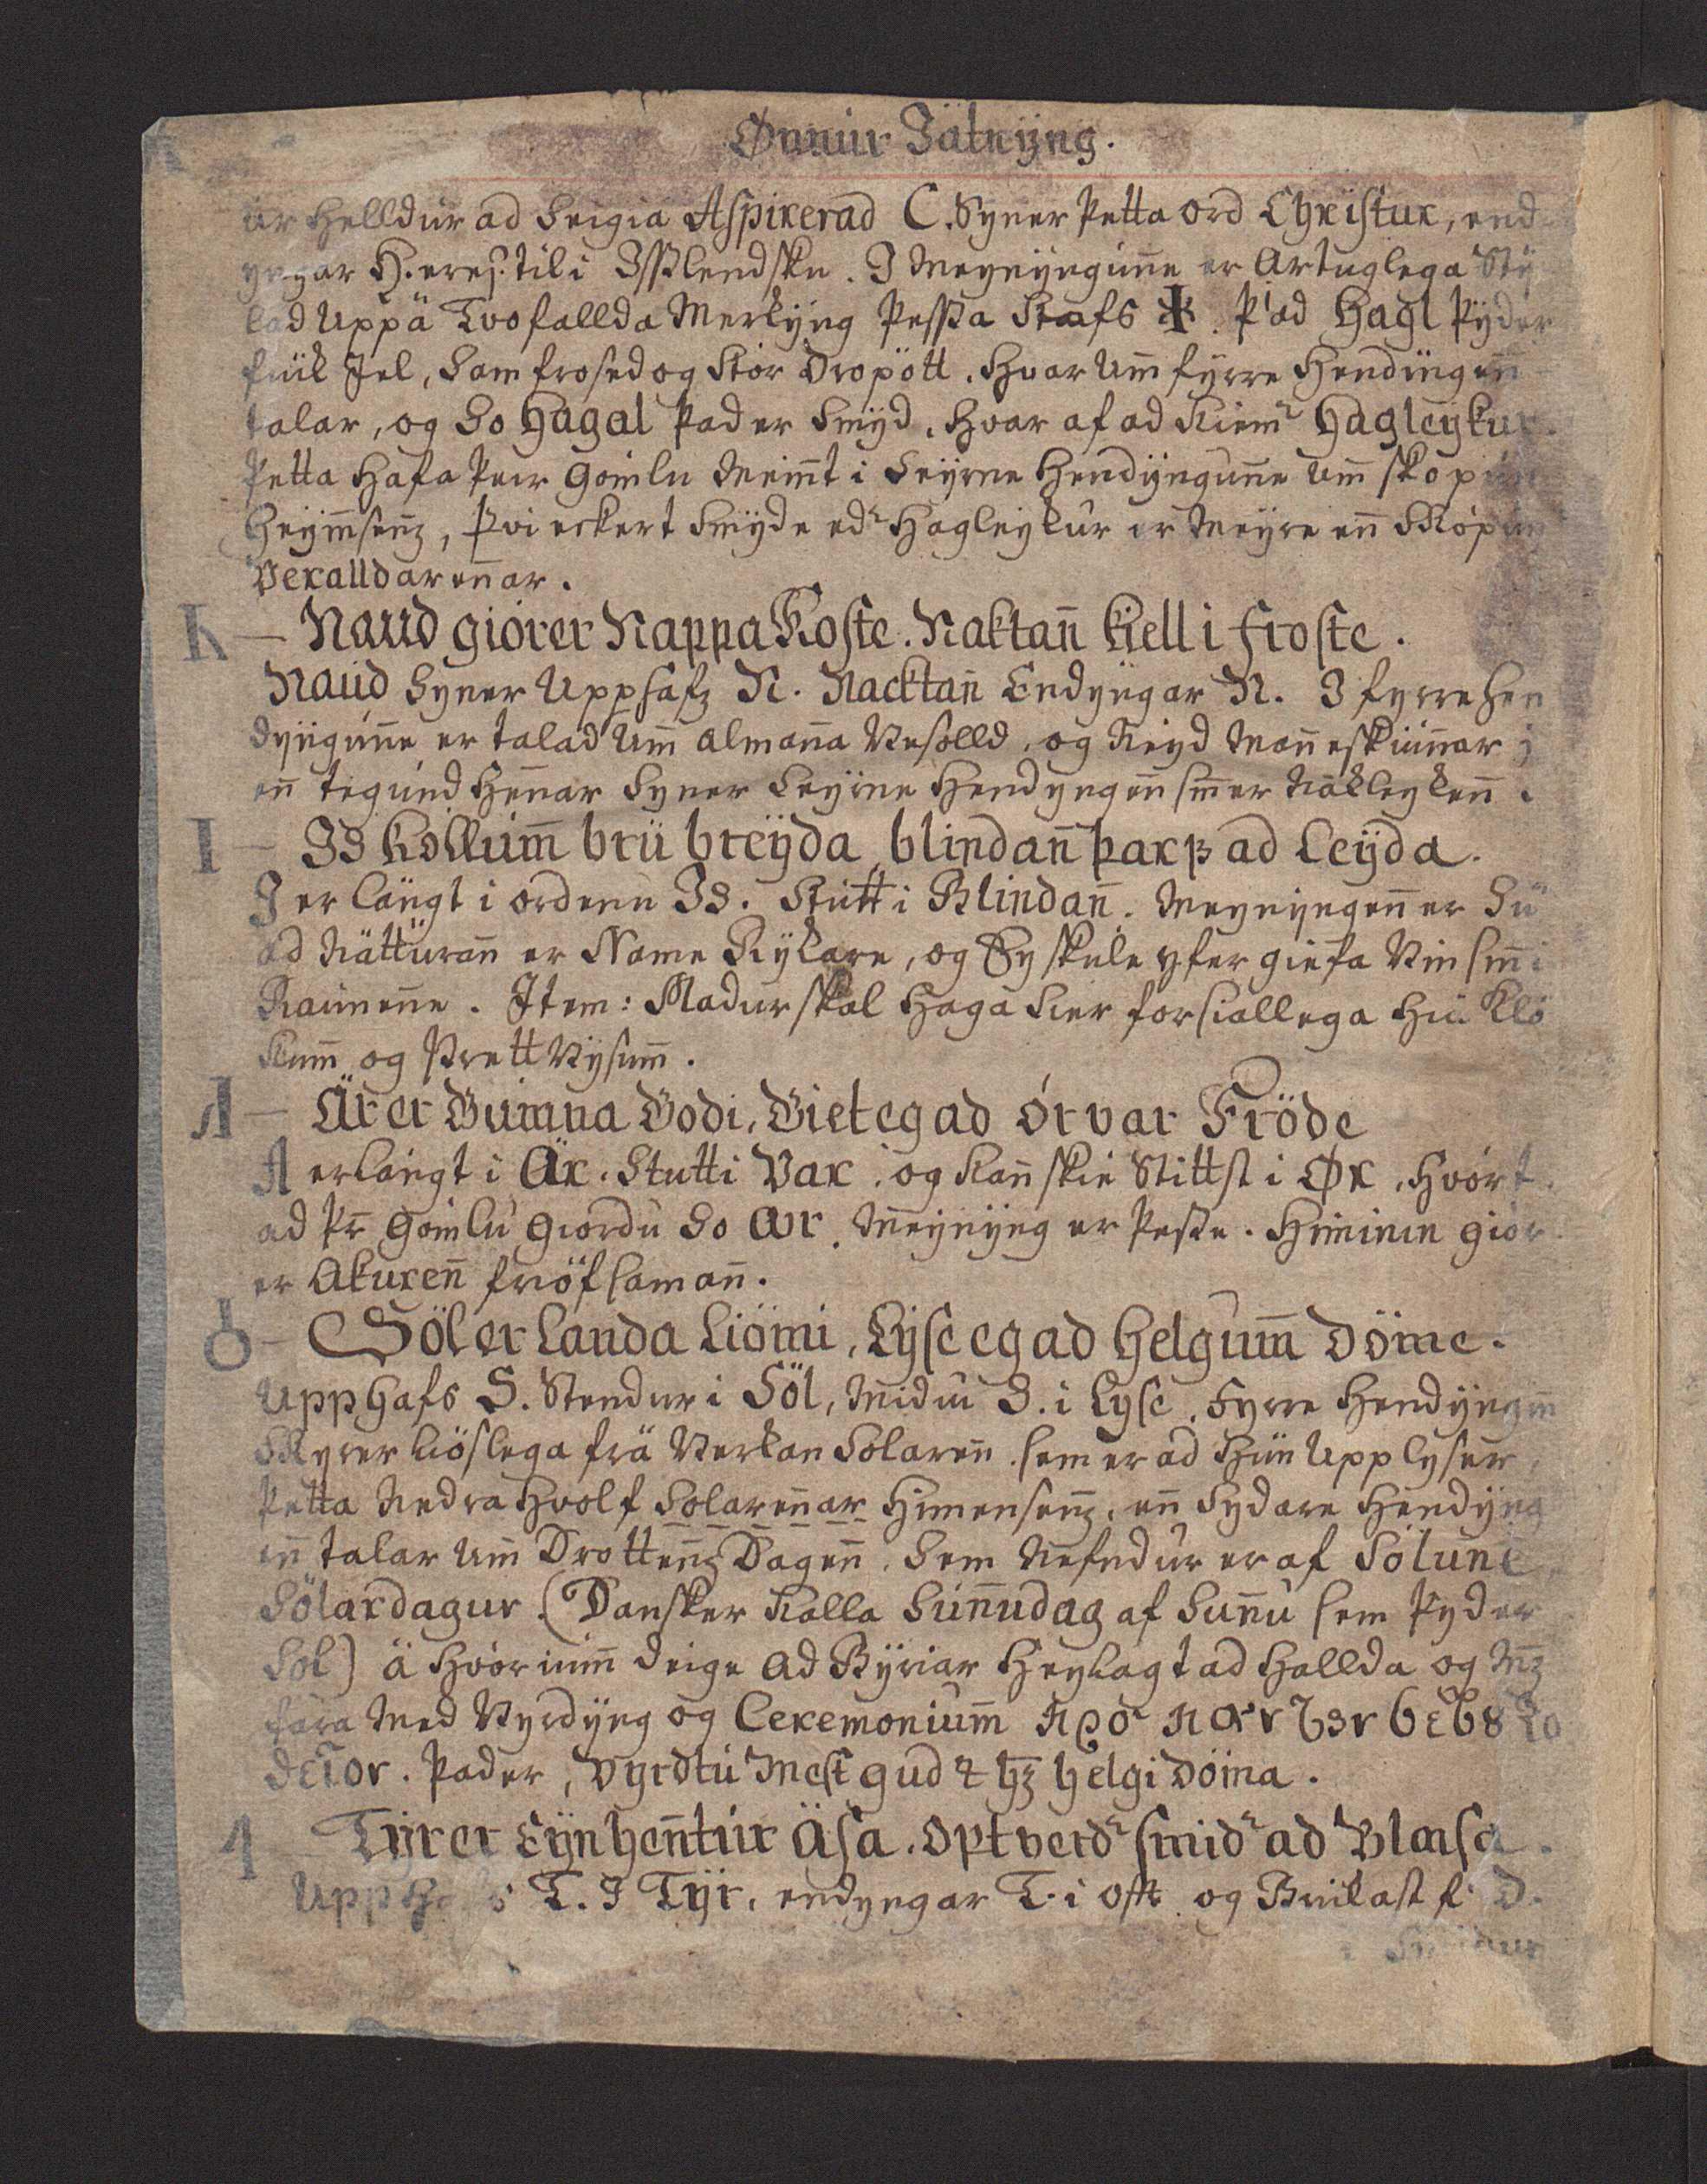 Ønnur Játnijng.
ur helldur ad Seigia Aspirerad C. Syner Þetta ord Christur, end
yngar H. eres. til i Jsslendsku. I Meynijngunne er Artuglega Stij
lad Uppä Tvofallda Merkijng Þessa Stafs ᚼ. Þad Hagl Þijder
fiuk Jel, Samfrosed og Stór Dropött. Hvar Um fyrre Hendijngen
talar, og So Hagal Þad er Smijd, Hvar af ad Kiemr Hagleykur.
Þetta Hafa Þeir Gomlu Meint i Seyrne Hendijngunne Um Skopun
Heymsenz, Þvi eckert Smijde edr Hagleykur er Meyre enn Skopun
Veralldarennar.
ᚾ — Naud giorer Nappa Koste. Naktann kiell i froste.
Naud Syner Upphafz N. Nacktann Endyngar N. I fyrre Hen
dijngunne er talad Um almanna Vesolld, og Neyd Manneskiunnar j
en tegund Hennar Syner Seyrne Hendyngenn sem er Nakleykenn.
ᛁ — Is kollum brü breyda, blindann þarf ad Leyda.
I er längt i ordenu Is. Stutt i Blindann. Meynijngenn er Sü
ad Nätturann er Name Rykare, og Þy skule yfer giefa Vin sem i
Raunenne. Item: Madur skal Haga Sier forsiallega Hia Klo
kum og Prett Vijsum.
ᛅ — Är er Gumna Godi, Giet eg ad ör var Fröde
A er längt i Är. Stutt i Var, og Kannskie Stittst i Ør, Hvort
ad Þr Gomlu Giordu So Avr. Meynijng er Þesse. Himinin gior
er Akurenn friöfsamann.
— Söl er Landa Liömi, Lyse eg ad Helgum Döme.
Upphafs S. Stendur i Söl, Midu S. i Lyse. Fyrre Hendijngin
Skyrer Liöslega frä Verkan Solaren. sem er ad Hün Upplyser,
Þetta Nedra Hvolf Solarennar Himensenz, enn Sydare Hendijng
in talar Um Drottenz Dagen, Sem Nefndur er af Solune
Sölardagur. (Dansker Kalla Sunnudag af Sunnu sem Þyder
Sol) ä Hvorium Deige ad Byriar Heylagt ad Hallda og Mz
fara Med Vyrdijng og Ceremonium
. Þad er, Vyrdtu Mest gud & hz helgi Döma.
ᛏ Tijr er Eynhenntur Äsa. Opt verdr smidr ad Blæsa.
Upphafs T. I Tijr, endyngar T. i oft og Brukast f. D.